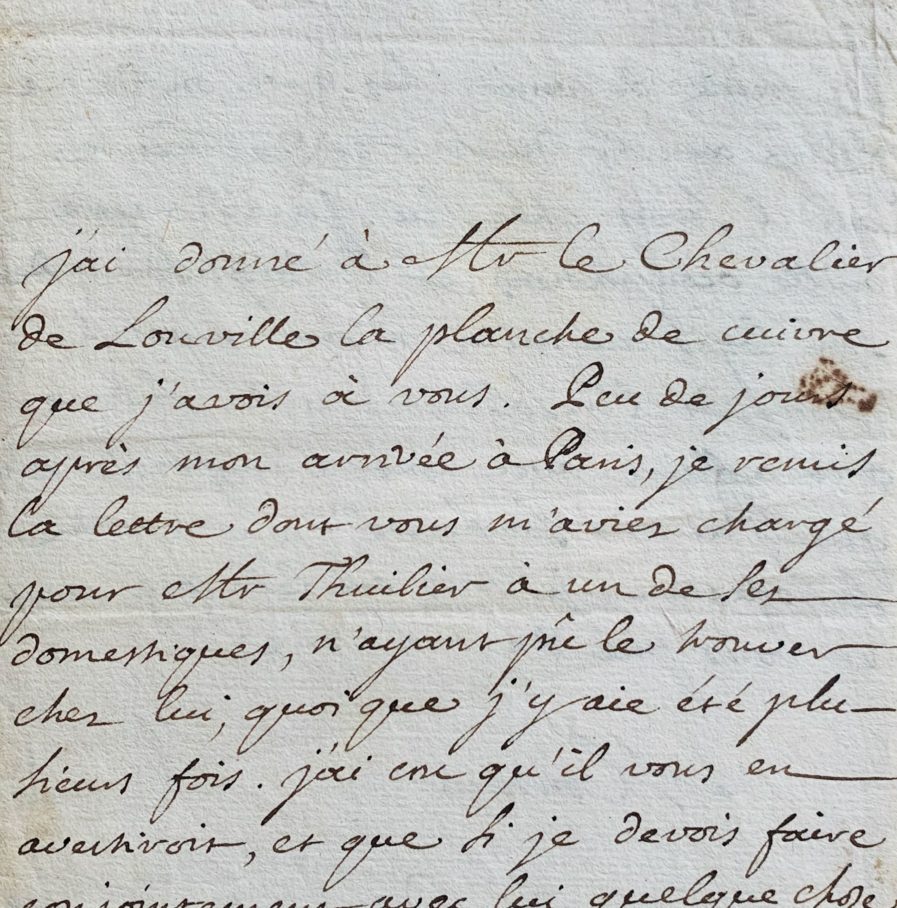 j'ai donné à Mr le Chevalier
de Louville la planche de cuivre
que j'avois à vous. Peu de jours
après mon arrivée à Paris, je remis
la lettre dont vous m'aviez chargé
pour Mr Thuilier à un de ses
domestiques, n'ayant pû le trouver
chez lui, quoi que j'y aie été plu-
sieurs fois. j'ai cru qu'il vous en
avertiroit, et que si je devois faire
conjointement avec lui quelque chose,